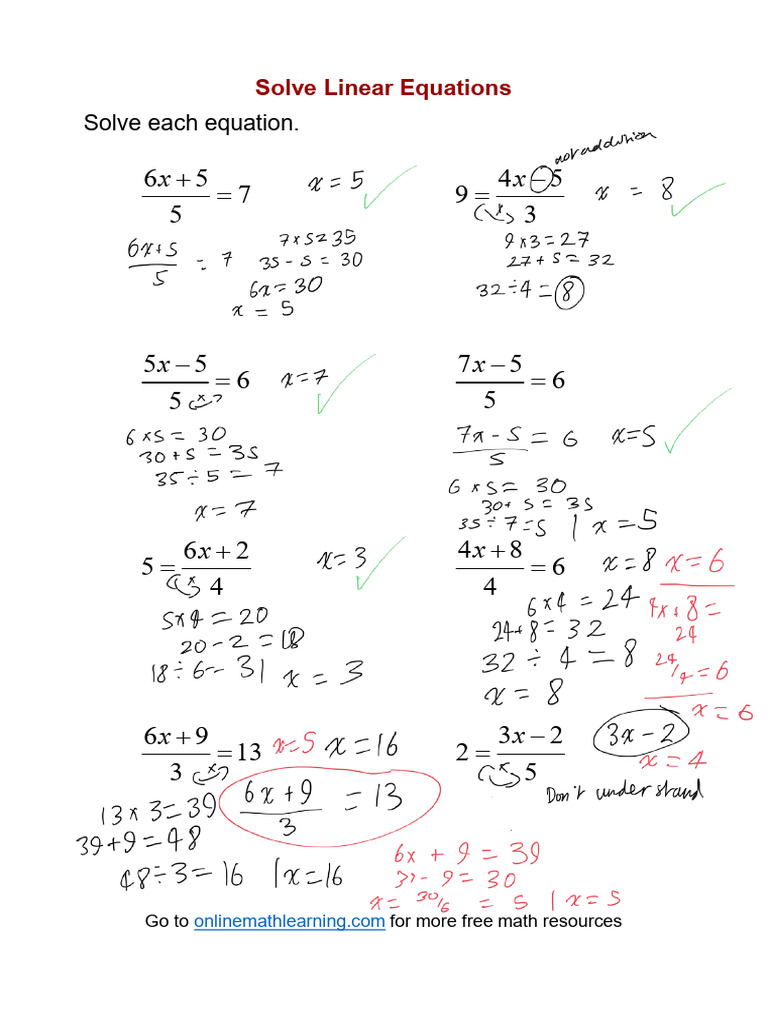 Solve Linear Equations
Solve each equation.
(6x + 5)/5 = 7 x = 5
6x+5/5 = 7
7 x 5 = 35
35 - 5 = 30
6x = 30
x = 5
not addition
9 = (4x - 5)/3 x = 8
x
9 x 3 = 27
27 + 5 = 32
32 ÷ 4 = 8
(5x - 5)/5 = 6 x = 7
x
6 x 5 = 30
30 + 5 = 35
35 ÷ 5 = 7
x = 7
(7x - 5)/5 = 6
7x - 5/5 = 6 x=5
6 x 5 = 30
30+ 5 = 35
35 ÷ 7 = 5 | x = 5
5 = (6x + 2)/4 x = 3
x
5x4 = 20
20 - 2 = 18
18 ÷ 6 = 3| x = 3
(4x + 8)/4 = 6 x = 8 x = 6
6 x 4 = 24
24+8 = 32
32 ÷ 4 = 8
x = 8
4x + 8 =
24
24/4 = 6
x = 6
(6x + 9)/3 = 13 x=5 x = 16
x
13 x 3 = 39
39 + 9 = 48
48 ÷ 3 = 16 | x = 16
6x + 9/3 = 13
2 = (3x - 2)/5 3x - 2
x
x = 4
Don't understand
6x + 9 = 39
39 - 9 = 30
x = 30/6 = 5 | x = 5
Go to onlinemathlearning.com for more free math resources